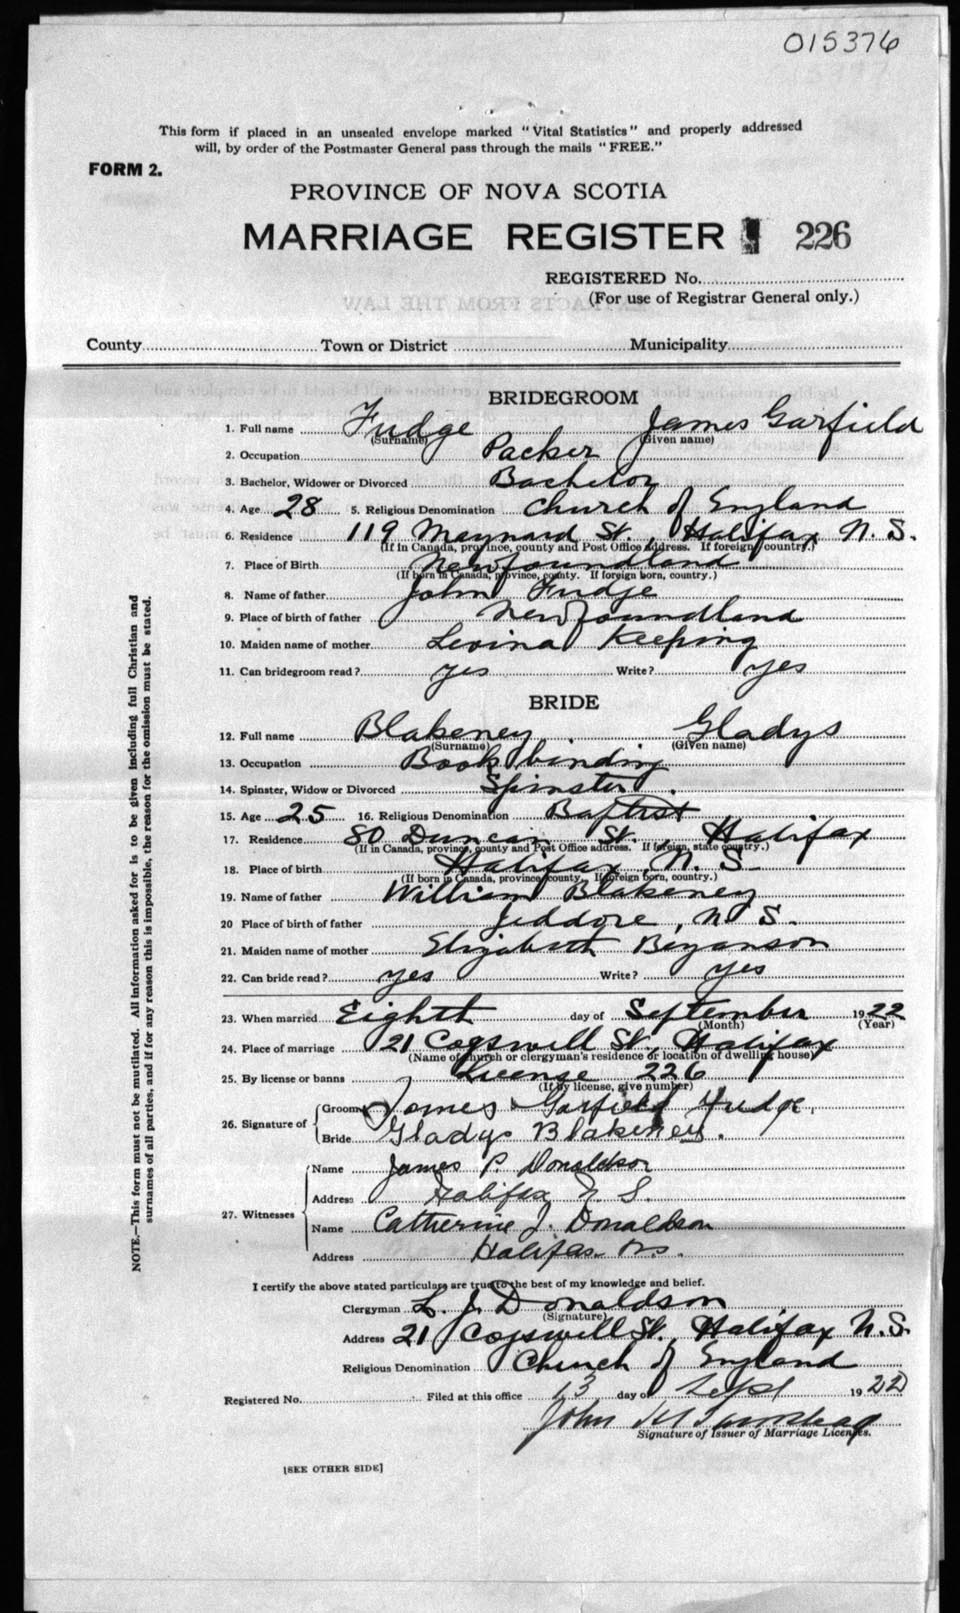 015376
This form if placed in an unsealed envelope marked "Vital Statistics" and properly addressed
will, by order of the Postmaster General pass through the mails "FREE."
FORM 2.
PROVINCE OF NOVA SCOTIA
MARRIAGE REGISTER 226
REGISTERED No.
(For use of Registrar General only.)
County Town or District Municipality
BRIDEGROOM
1. Full name Fudge James Garfield
(Surname) (Given name)
2. Occupation Packer
3. Bachelor, Widower or Divorced Bachelor
4. Age 28 5. Religious Denomination Church of England
6. Residence 119 Maynard St., Halifax N.S.
(If in Canada, province, county and Post Office address. If foreign, country.)
7. Place of Birth Newfoundland
(If born in Canada, province, county. If foreign born, country.)
8. Name of father John Fudge
9. Place of birth of father Newfoundland
10. Maiden name of mother Levina Keeping
11. Can bridegroom read? yes Write? yes
BRIDE
12. Full name Blakeney Gladys
(Surname) (Given name)
13. Occupation Book binding
14. Spinster, Widow or Divorced Spinster.
15. Age 25 16. Religious Denomination Baptist
17. Residence 80 Duncan St., Halifax
(If in Canada, province, county and Post Office address. If foreign, state country.)
18. Place of birth Halifax, N.S.
(If born in Canada, province, county. If foreign born, country.)
19. Name of father William Blakeney
20 Place of birth of father Jeddore, N S.
21. Maiden name of mother Elizabeth Beyanson
22. Can bride read? yes Write? yes
23. When married Eighth day of September 1922
(Month) (Year)
24. Place of marriage 21 Cogswell St., Halifax
(Name of church or clergyman's residence or location of dwelling house)
25. By license or banns License 226
(If by license, give number)
26. Signature of Groom James Garfield Fudge.
Bride Gladys Blakeney.
27. Witnesses Name James P Donaldson
Address Halifax N.S.
Name Catherine J. Donaldson
Address Halifax N.S.
I certify the above stated particulars are true to the best of my knowledge and belief.
Clergyman L. J. Donaldson
(Signature)
Address 21 Cogswell St., Halifax N.S.
Religious Denomination Church of England
Registered No. Filed at this office 13 day of Sept 1922
John
Signature of Issuer of Marriage Licenses.
[SEE OTHER SIDE]
NOTE.—This form must not be mutilated. All information asked for is to be given including full Christian and
surnames of all parties, and if for any reason this is impossible, the reason for the omission must be stated.